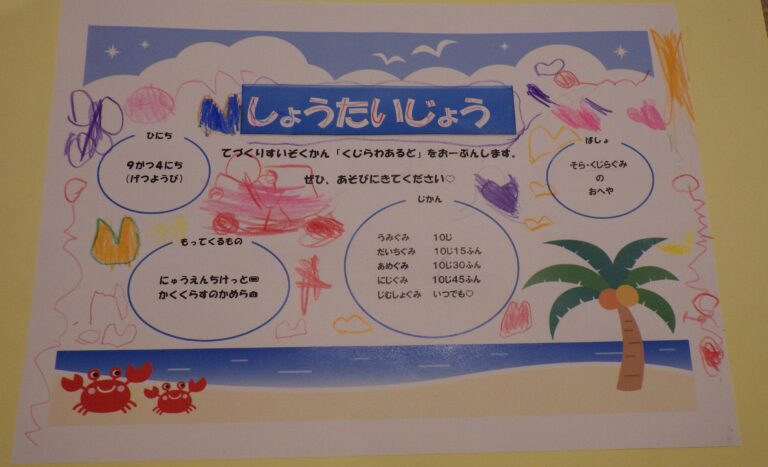 しょうたいじょう
てづくりすいぞくかん「くじらわあるど」をおーぷんします。
ぜひ、あそびにきてください♡
ひにち
9がつ4にち
(げつようび)
ばしょ
そら・くじらぐみ
の
おへや
もってくるもの
にゅうえんちけっと🎫
かくくらすのかめら📷
じかん
うみぐみ 10じ
だいちぐみ 10じ15ふん
あめぐみ 10じ30ふん
にじぐみ 10じ45ふん
じむしょぐみ いつでも♡